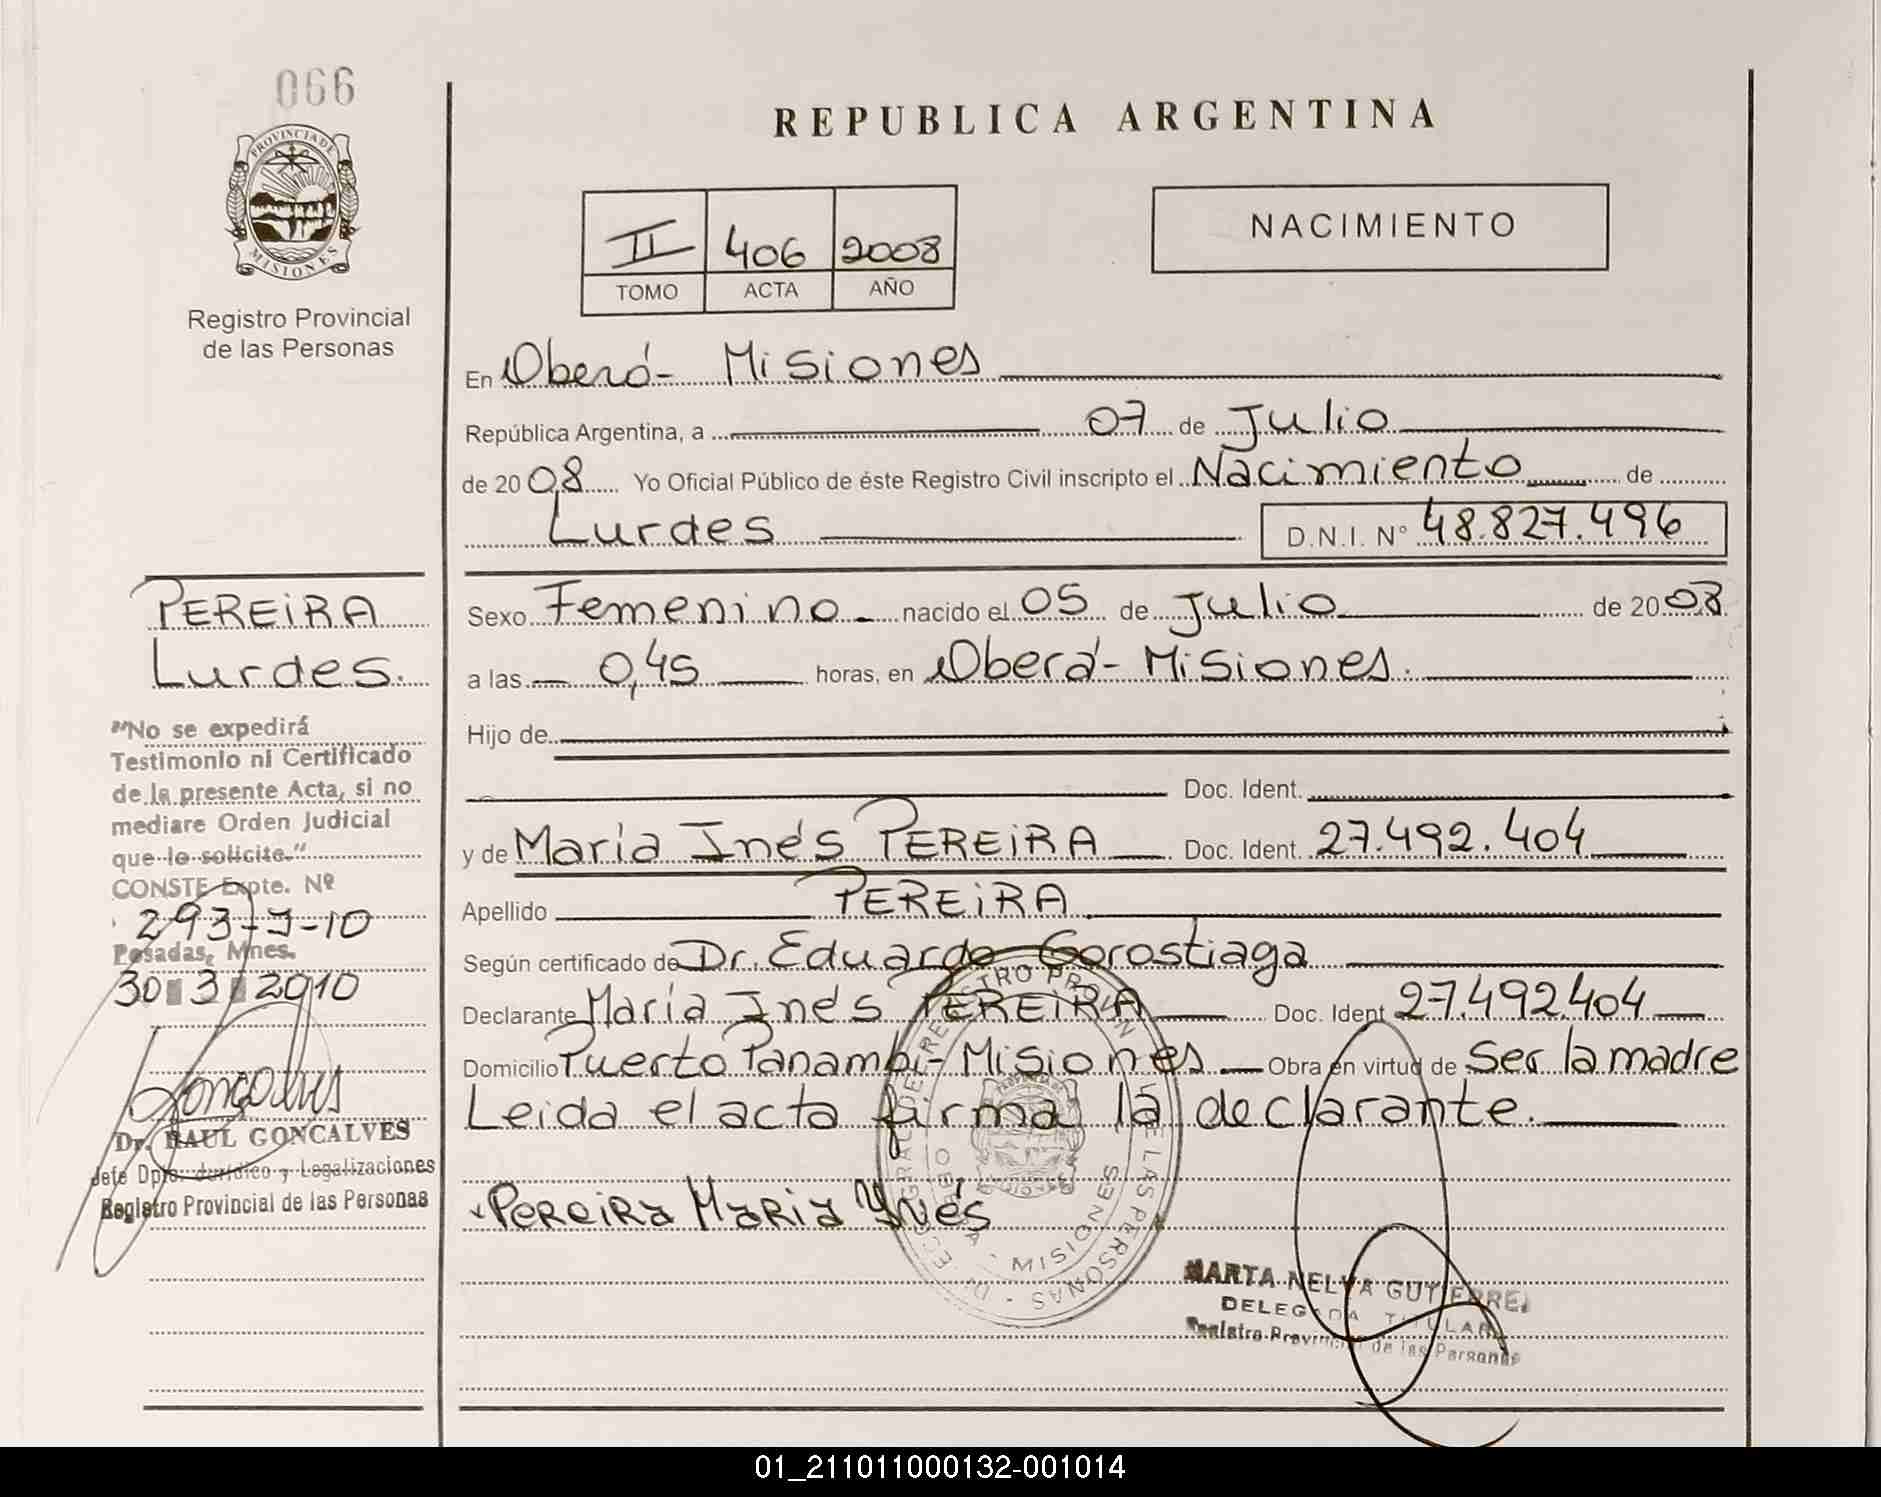 066
PROVINCIA DE
MISIONES
Registro Provincial
de las Personas
REPUBLICA ARGENTINA
II 406 2008
TOMO ACTA AÑO
NACIMIENTO
En Oberá- Misiones
República Argentina, a 07 de Julio
de 2008 Yo Oficial Público de éste Registro Civil inscripto el Nacimiento de
Lurdes D.N.I. N° 48.827.496
PEREIRA
Lurdes.
"No se expedirá
Testimonio ni Certificado
de la presente Acta, si no
mediare Orden Judicial
que lo solicite."
CONSTE Expte. Nº
293-J-10
Posadas, Mnes.
30 3 2010
Dr. RAUL GONCALVES
Jefe Dpto. Jurídico y Legalizaciones
Registro Provincial de las Personas
Sexo Femenino nacido el 05 de Julio de 2008
a las 0,45 horas, en Oberá- Misiones.
Hijo de
Doc. Ident.
y de María Inés PEREIRA Doc. Ident. 27.492.404
Apellido PEREIRA
Según certificado de Dr. Eduardo Gorostiaga
Declarante María Inés PEREIRA Doc. Ident 27.492.404
Domicilio Puerto Panambí- Misiones Obra en virtud de Ser la madre
Leida el acta firma la declarante.
PEREIRA MARIA YNéS
MISIONES
MARTA NELVA GUTIERREZ
DELEGADA TITULAR
Registro Provincial de las Personas
01_211011000132-001014